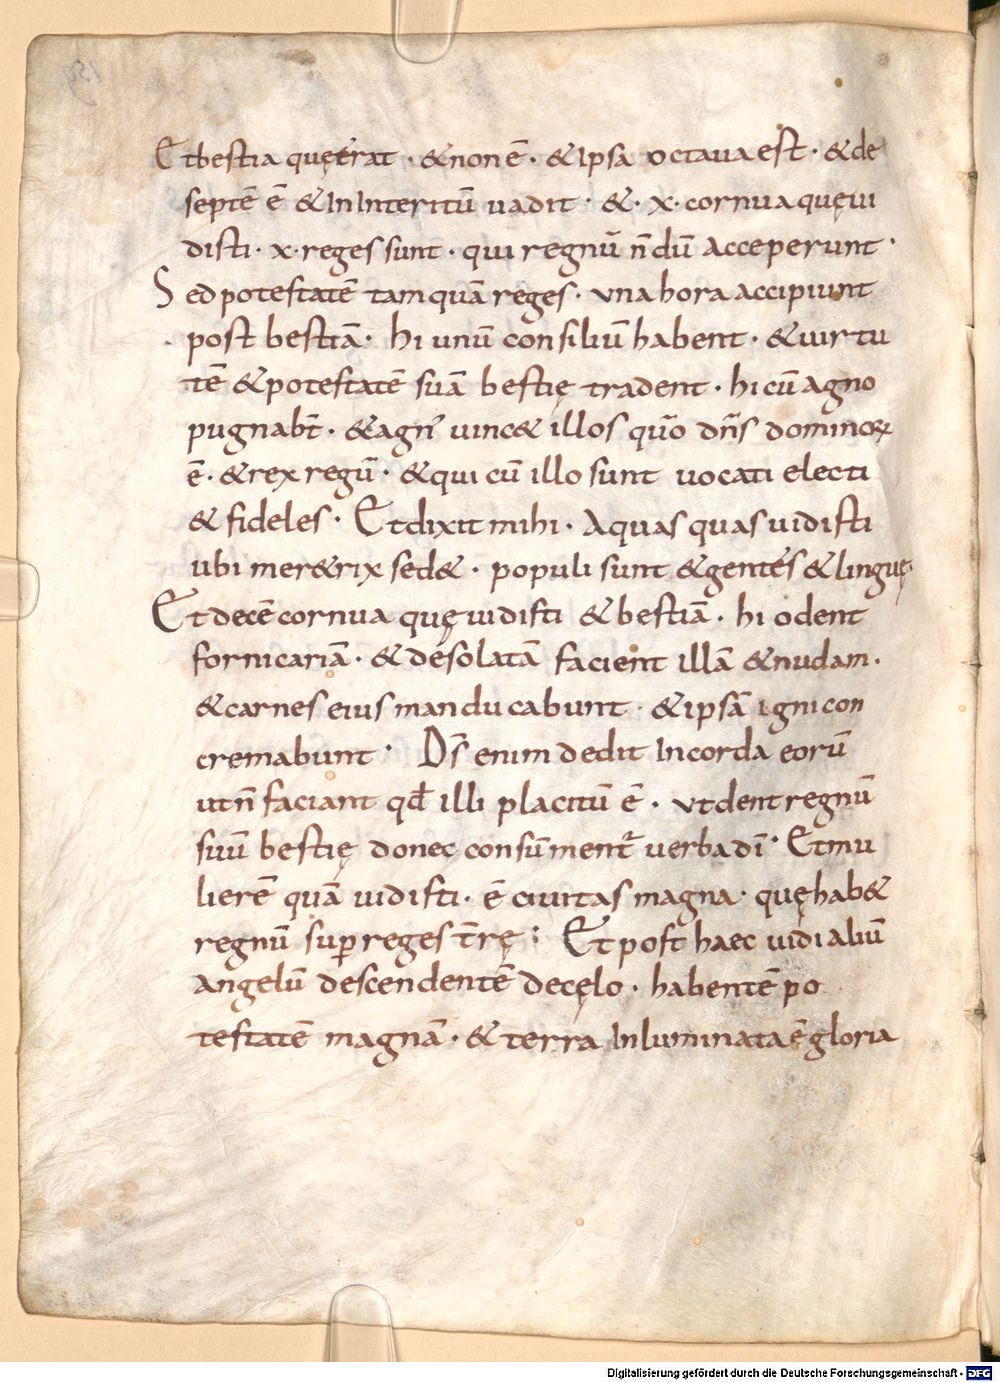 Et bestia quę erat · & non ē · & ipsa octaua est · & de
septē ē & in interitū uadit · & · x · cornua quę ui
disti · x · reges sunt · qui regnū n̄dū acceperunt ·
Sed potestatē tamquā reges · una hora accipiunt
post bestiā · hi unū consiliū habent · & uirtu
tē & potestatē suā bestię tradent · hi cū agno
pugnab̄t · & agn᾿ uinc& illos qūo dn̄s dominoꝝ
ē · & rex regū · & qui cū illo sunt uocati electi
& fideles · Et dixit mihi · Aquas quas uidisti
ubi mer&rix sed& · populi sunt & gentes & linguę
Et decē cornua quę uidisti & bestiā · hi odent
fornicariā · & desolatā facient illā & nudam ·
& carnes eius manducabunt · & ipsā igni con
cremabunt · D̄s enim dedit in corda eorū
ut n̄ faciant qđ illi placitū ē · ut dent regnū
suū bestię donec consūment᷑ uerba dī · Et mu
lierē quā uidisti · ē ciuitas magna · quę hab&
regnū sup̄ reges t̄rę : Et post haec uidi aliū
angelū descendentē de cęlo · habentē po
testatē magnā · & terra inluminata ē gloria
Digitalisierung gefördert durch die Deutsche Forschungsgemeinschaft - DFG